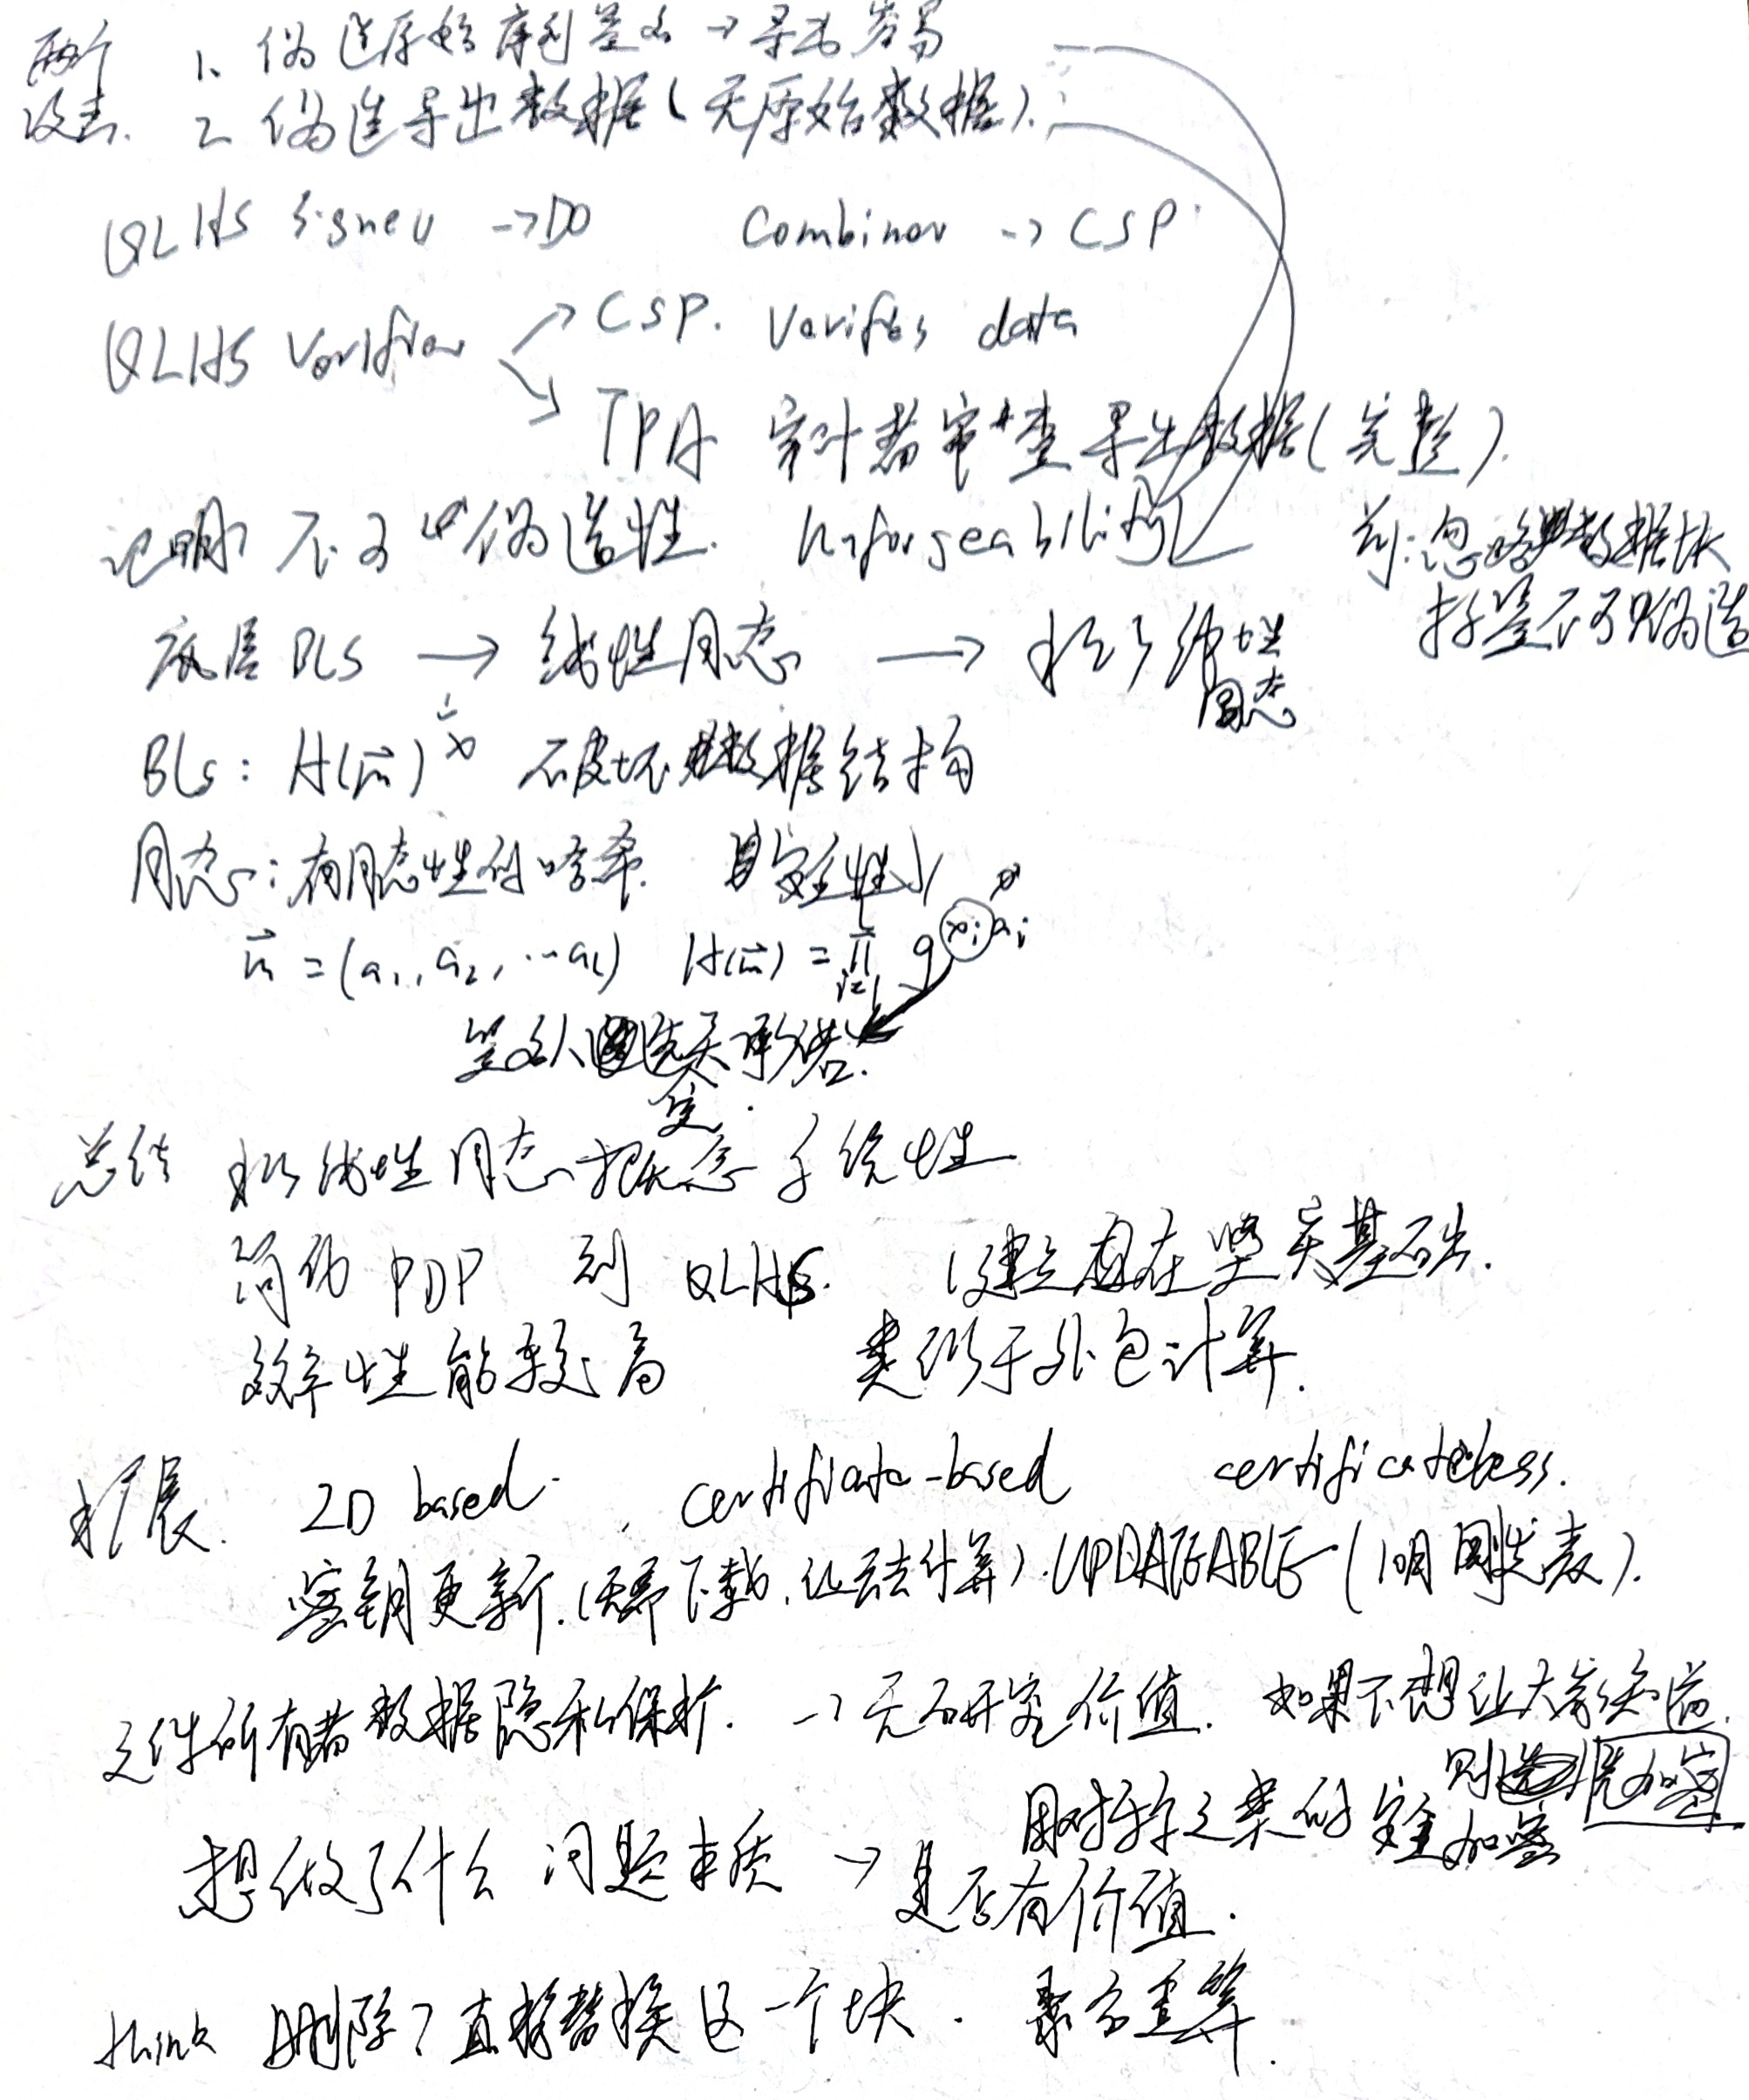 两个 1、伪造原始序列签名 → 寻找容易
攻击. 2 伪造导出数据(无原始数据).
QLHS signer → DO Combiner → CSP.
QLHS Verifier → CSP. Verifies data
→ TPA 审计者审查导出数据(完整).
证明 不可伪造性. Unforgeability 前:忽略数据块
标签不可伪造
底层BLS → 线性同态 → 拟线性
同态
BLS: H(m)^x 不破坏数据结构
同态: 有同态性的哈希. 安全性
m = (a1, a2, ... al) H(m) = ∏ g^{xi ai}
i=1
签名人 承诺.
总结 拟线性同态概念 系统性
简化 PDP 到 QLHS. 建立在坚实基础.
效率性能较高 类似于外包计算.
扩展. ID based. certificate-based certificateless.
密钥更新.(无需下载,让云去计算).UPDATEABLE (明年发表).
文件所有者数据隐私保护. → 无研究价值. 如果不想让大家知道.
则 先加密
用对称之类的完全加密
想做了什么 问题本质 → 是否有价值.
think 删除?直接替换这一个块. 聚合重算.